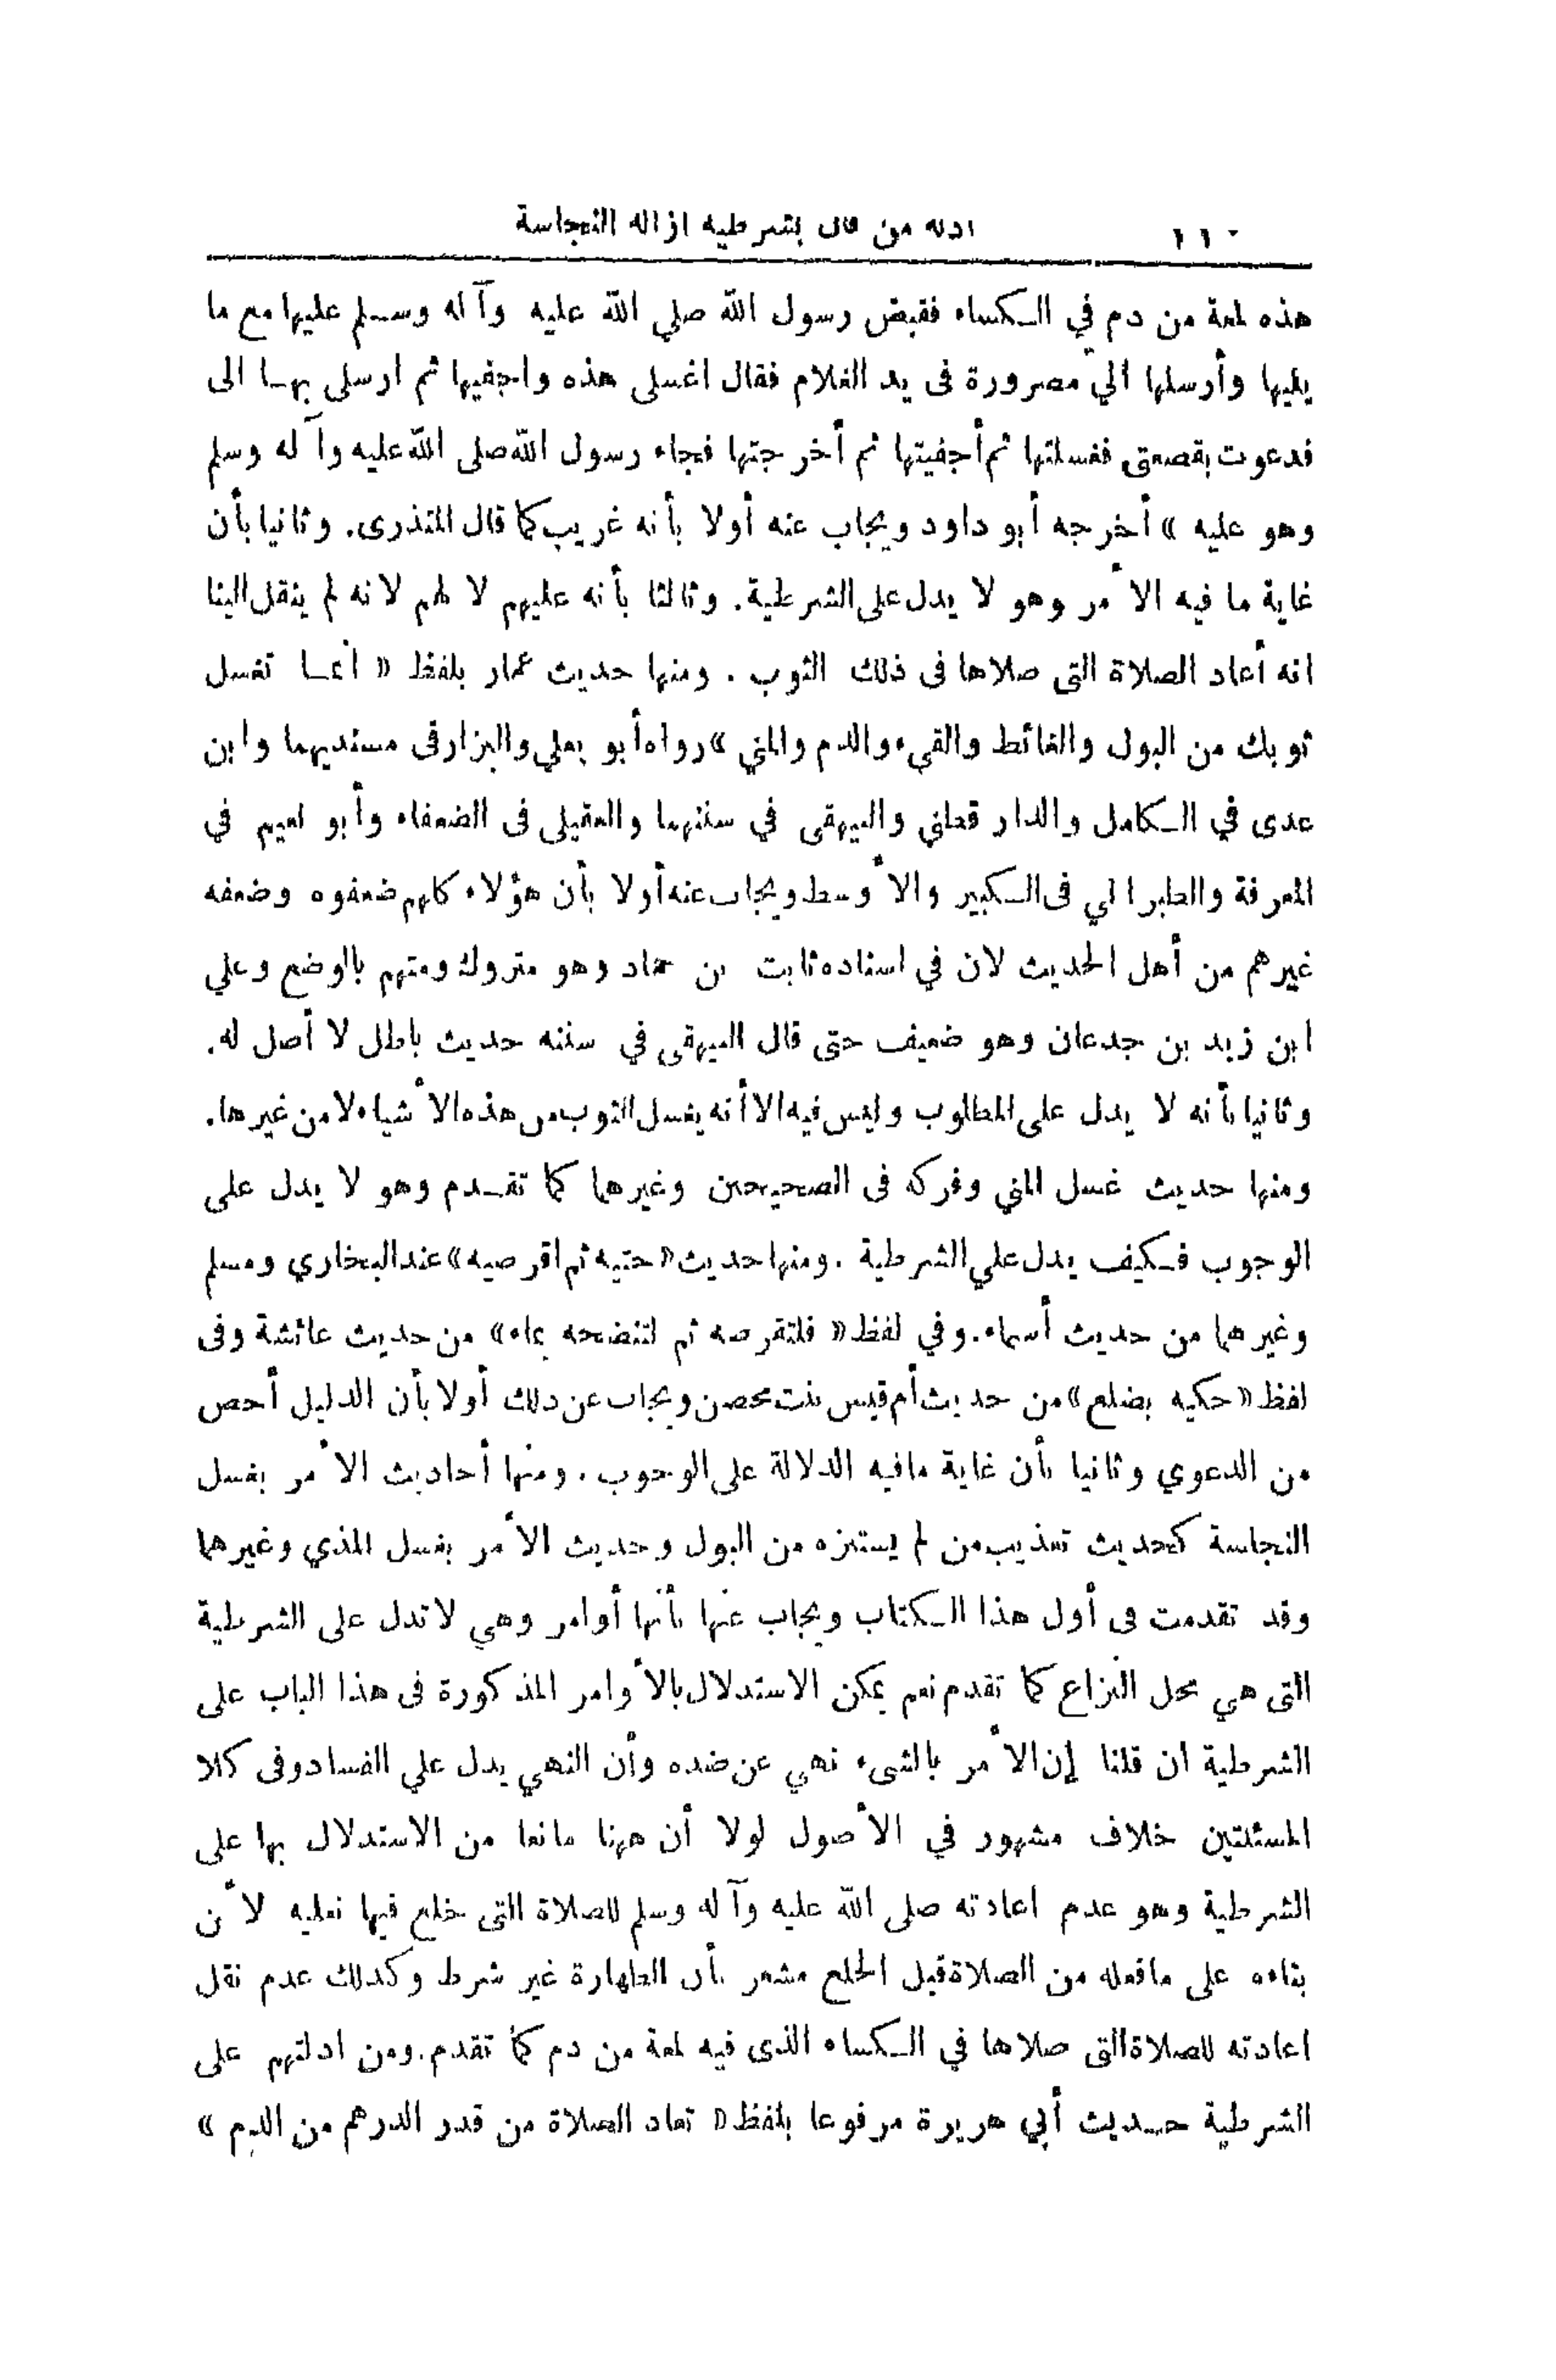 ١١٠ ادلة من قال بشرطية ازالة النجاسة
هذه لمعة من دم في الكساء فقبض رسول الله صلي الله عليه وآله وسلم عليها مع ما
يليها وأرسلها الي مصرورة فى يد الغلام فقال اغسلى هذه واجفيها ثم ارسلى بها الى
فدعوت بقصعتى فغسلتها ثم أجفيتها ثم أخرجتها فجاء رسول الله صلى الله عليه وآله وسلم
وهو عليه » أخرجه أبو داود ويجاب عنه أولا بأنه غريب كما قال المنذرى. وثانيا بأن
غاية ما فيه الأمر وهو لا يدل على الشرطية. وثالثا بأنه عليهم لا لهم لانه لم ينقل الينا
انه أعاد الصلاة التى صلاها فى ذلك الثوب . ومنها حديث عمار بلفظ « انما تغسل
ثوبك من البول والغائط والقيء والدم والمني » رواه أبو يعلي والبزار فى مسنديهما وابن
عدى في الكامل والدار قطني والبيهقى في سننهما والعقيلى فى الضعفاء وأبو نعيم في
المعرفة والطبراني فى الكبير والأوسط ويجاب عنه أولا بأن هؤلاء كلهم ضعفوه وضعفه
غيرهم من أهل الحديث لان في اسناده ثابت بن حماد وهو متروك ومتهم بالوضع وعلي
ابن زيد بن جدعان وهو ضعيف حتى قال البيهقى في سننه حديث باطل لا أصل له.
وثانيا بأنه لا يدل على المطلوب وليس فيه الا أنه يغسل الثوب من هذه الأشياء لا من غيرها.
ومنها حديث غسل المني وفركه فى الصحيحين وغيرهما كما تقدم وهو لا يدل على
الوجوب فكيف يدل علي الشرطية . ومنها حديث « حتيه ثم اقرصيه » عند البخاري ومسلم
وغيرهما من حديث أسماء. وفي لفظ « فلتقرصه ثم لتنضحه بماء » من حديث عائشة وفى
لفظ « حكيه بضلع » من حديث أم قيس بنت محصن ويجاب عن ذلك أولا بأن الدليل أخص
من الدعوي وثانيا بأن غاية مافيه الدلالة على الوجوب . ومنها أحاديث الأمر بغسل
النجاسة كحديث تعذيب من لم يستنزه من البول وحديث الأمر بغسل المذي وغيرهما
وقد تقدمت فى أول هذا الكتاب ويجاب عنها بأنها أوامر وهي لا تدل على الشرطية
التى هي محل النزاع كما تقدم نعم يمكن الاستدلال بالأوامر المذكورة فى هذا الباب على
الشرطية ان قلنا إن الأمر بالشىء نهي عن ضده وأن النهي يدل علي الفساد وفى كلا
المسئلتين خلاف مشهور في الأصول لولا أن ههنا مانعا من الاستدلال بها على
الشرطية وهو عدم اعادته صلى الله عليه وآله وسلم للصلاة التى خلع فيها نعليه لأن
بناءه على مافعله من الصلاة قبل الخلع مشعر بأن الطهارة غير شرط وكذلك عدم نقل
اعادته للصلاة التى صلاها في الكساء الذى فيه لمعة من دم كما تقدم. ومن ادلتهم على
الشرطية حديث أبي هريرة مرفوعا بلفظ « تعاد الصلاة من قدر الدرهم من الدم »